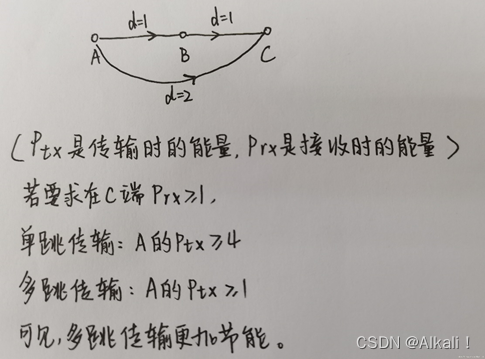 d=1 d=1
A B C
d=2
(Ptx是传输时的能量,Prx是接收时的能量)
若要求在C端 Prx≥1,
单跳传输:A的Ptx≥4
多跳传输:A的Ptx≥1
可见,多跳传输更加节能。
CSDN @Alkali!